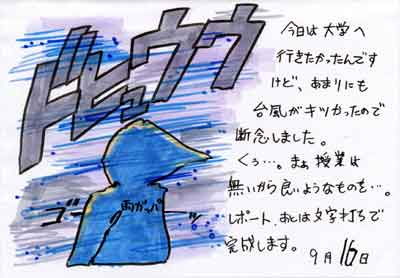 ドヒュウウ
今日は大学へ
行きたかったんです
けど、あまりにも
台風がキツかったので
断念しました。
くぅ…。まぁ授業は
無いから良いようなものを…。
レポート、あとは文字打ちで
完成します。
9月16日
雨ガッパ
ゴー
ッ